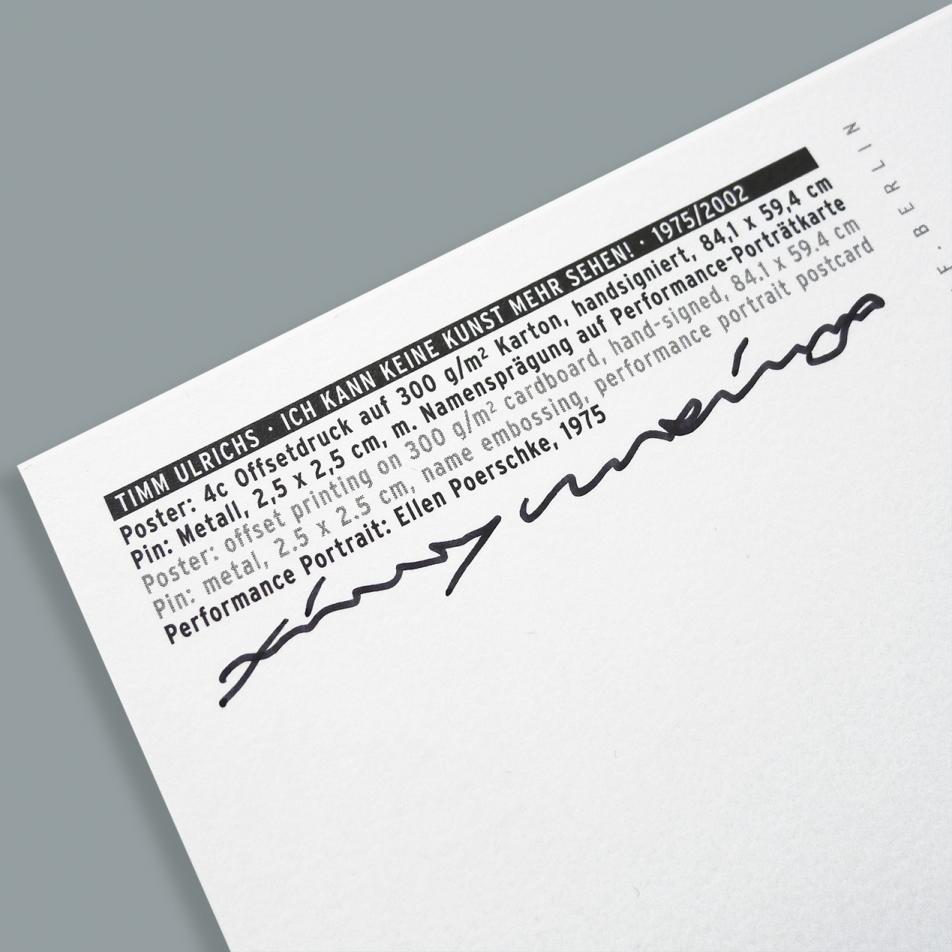 TIMM ULRICHS · ICH KANN KEINE KUNST MEHR SEHEN! · 1975/2002
Poster: 4c Offsetdruck auf 300 g/m² Karton, handsigniert, 84,1 x 59,4 cm
Pin: Metall, 2,5 x 2,5 cm, m. Namensprägung auf Performance-Porträtkarte
Poster: offset printing on 300 g/m² cardboard, hand-signed, 84.1 x 59.4 cm
Pin: metal, 2.5 x 2.5 cm, name embossing, performance portrait postcard
Performance Portrait: Ellen Poerschke, 1975
BERLIN